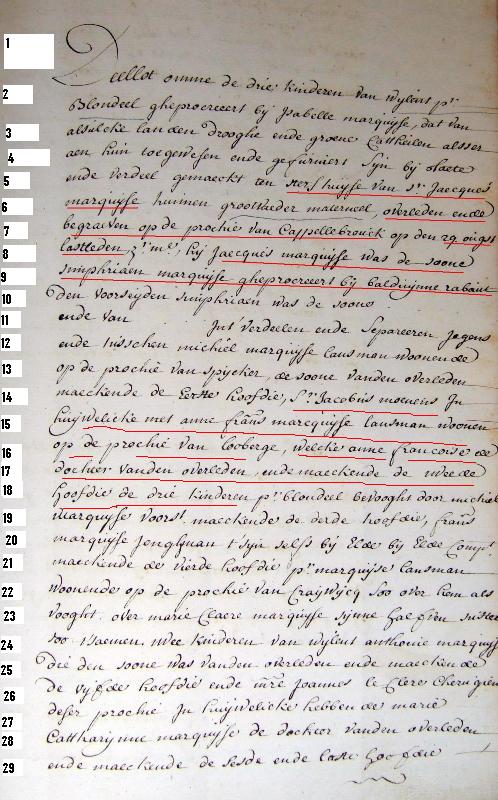 1
Deellot omme de drie kinderen van wylent pr
2 Blondeel gheprocreeert bij Isabelle marquijse, dat van
3 alsulcke landen drooghe ende groene Catthuilen alsser
4 aen hun toegewesen ende gefurniert Syn bij staete
5 ende verdeel gemaeckt ten sterfhuijse van Sr. Jacques
6 marquijse hunnen grootvader materneel, overleden ende
7 begraven op de prochie van Cappellebrouck op den 29 ougst
8 lastleden, hij Jacques marquijse was de soone
9 Simphriaen marquijse gheprocreeert bij balduijnne rabaut
10 Den voorseyden Simphriaen was de soone
11 ende van Int verdeelen ende Separeeren Jegens
12 ende tusschen michiel marquijse lansman woonende
13 op de prochie van spijcker, de soone vanden overleden
14 maeckende de Eerste hoofdie, Sr. Jacobus moenens In
15 huijwelicke met anne frans marquijse lansman woonen
16 op de prochie van looberge, welcke anne francoise de
17 dochter vanden overleden, ende maeckende de tweede
18 hoofdie de drie kinderen pr. blondeel bevooght door michiel
19 Marquijse voorst. maeckende de derde hoofdie, frans
20 marquijse Jonghman t'syn selfs bij Eede bij Eede Compt.
21 maeckende de vierde hoofdie pr. marquijse lansman
22 woonende op de prochie van Craywijcq soo over hem als
23 vooght over marie Claere marquijse sijnne suster
24 soo tsaemen twee kinderen van wylent anthonie marquijse
25 die den soone was vanden overleden ende maeckende
26 de vijfde hoofdie ende mre Joannes le Clerc Cherurgien
27 deser prochie In huijwelicke hebbende marie
28 Catharijnne marquijse de dochter vanden overleden
29 ende maeckende de sesde ende laste hoofdie